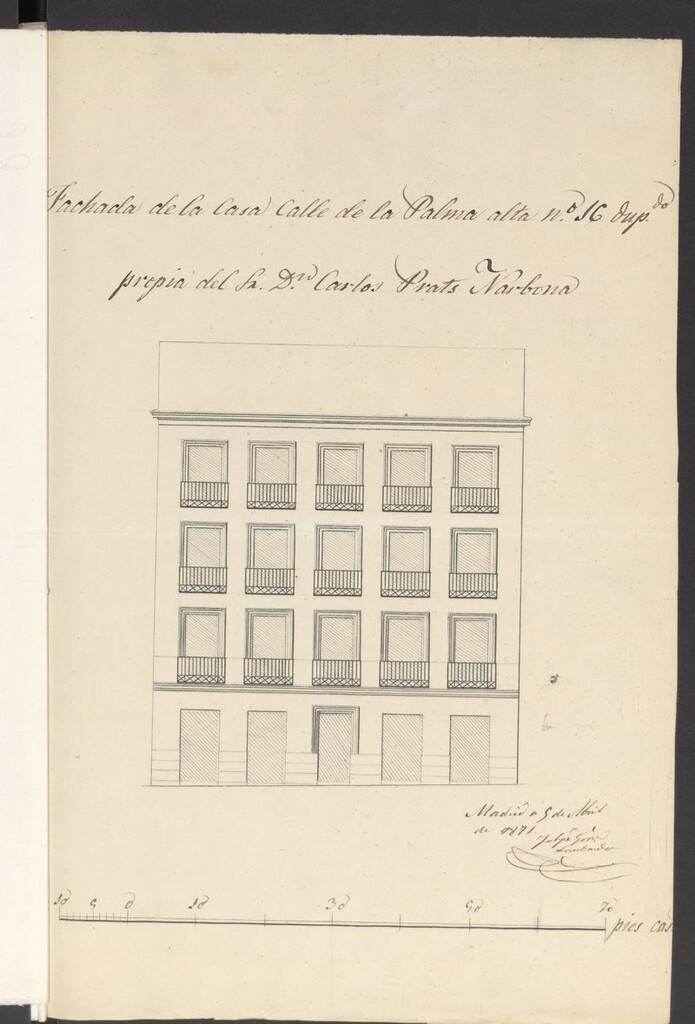 Fachada de la Casa Calle de la Palma alta n.º 16 dup.do
propia del Sr. D.n Carlos Prats Narbona
Madrid a 5 de Abril
de 1871
10 5 0 10 30 50 70
pies cas